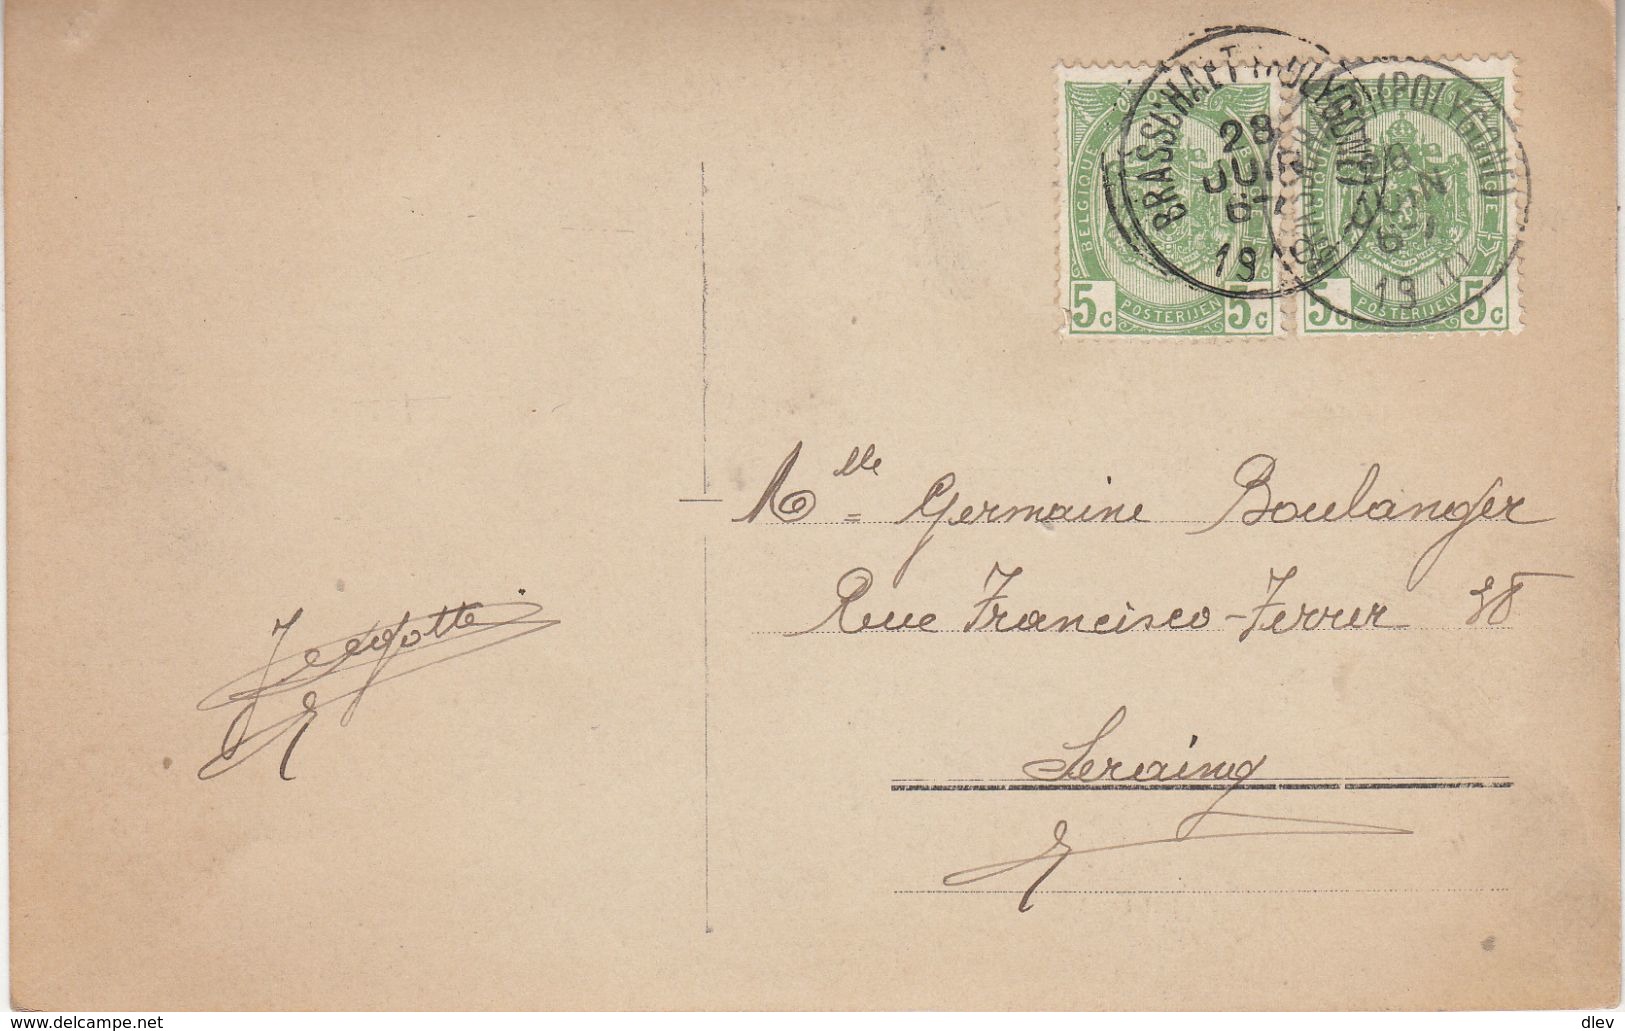 BRASSCHAET (POLYGONE)
28
JUIN
6-7
1910
BRASSCHAET (POLYGONE)
28
JUIN
6-7
1910
POSTES
BELGIQUE
5c POSTERIJEN 5c
POSTES
BELGIQUE
5c POSTERIJEN 5c
Mlle Germaine Boulanger
Rue Francisco-Ferrer 38
Seraing
www.delcampe.net
dlev